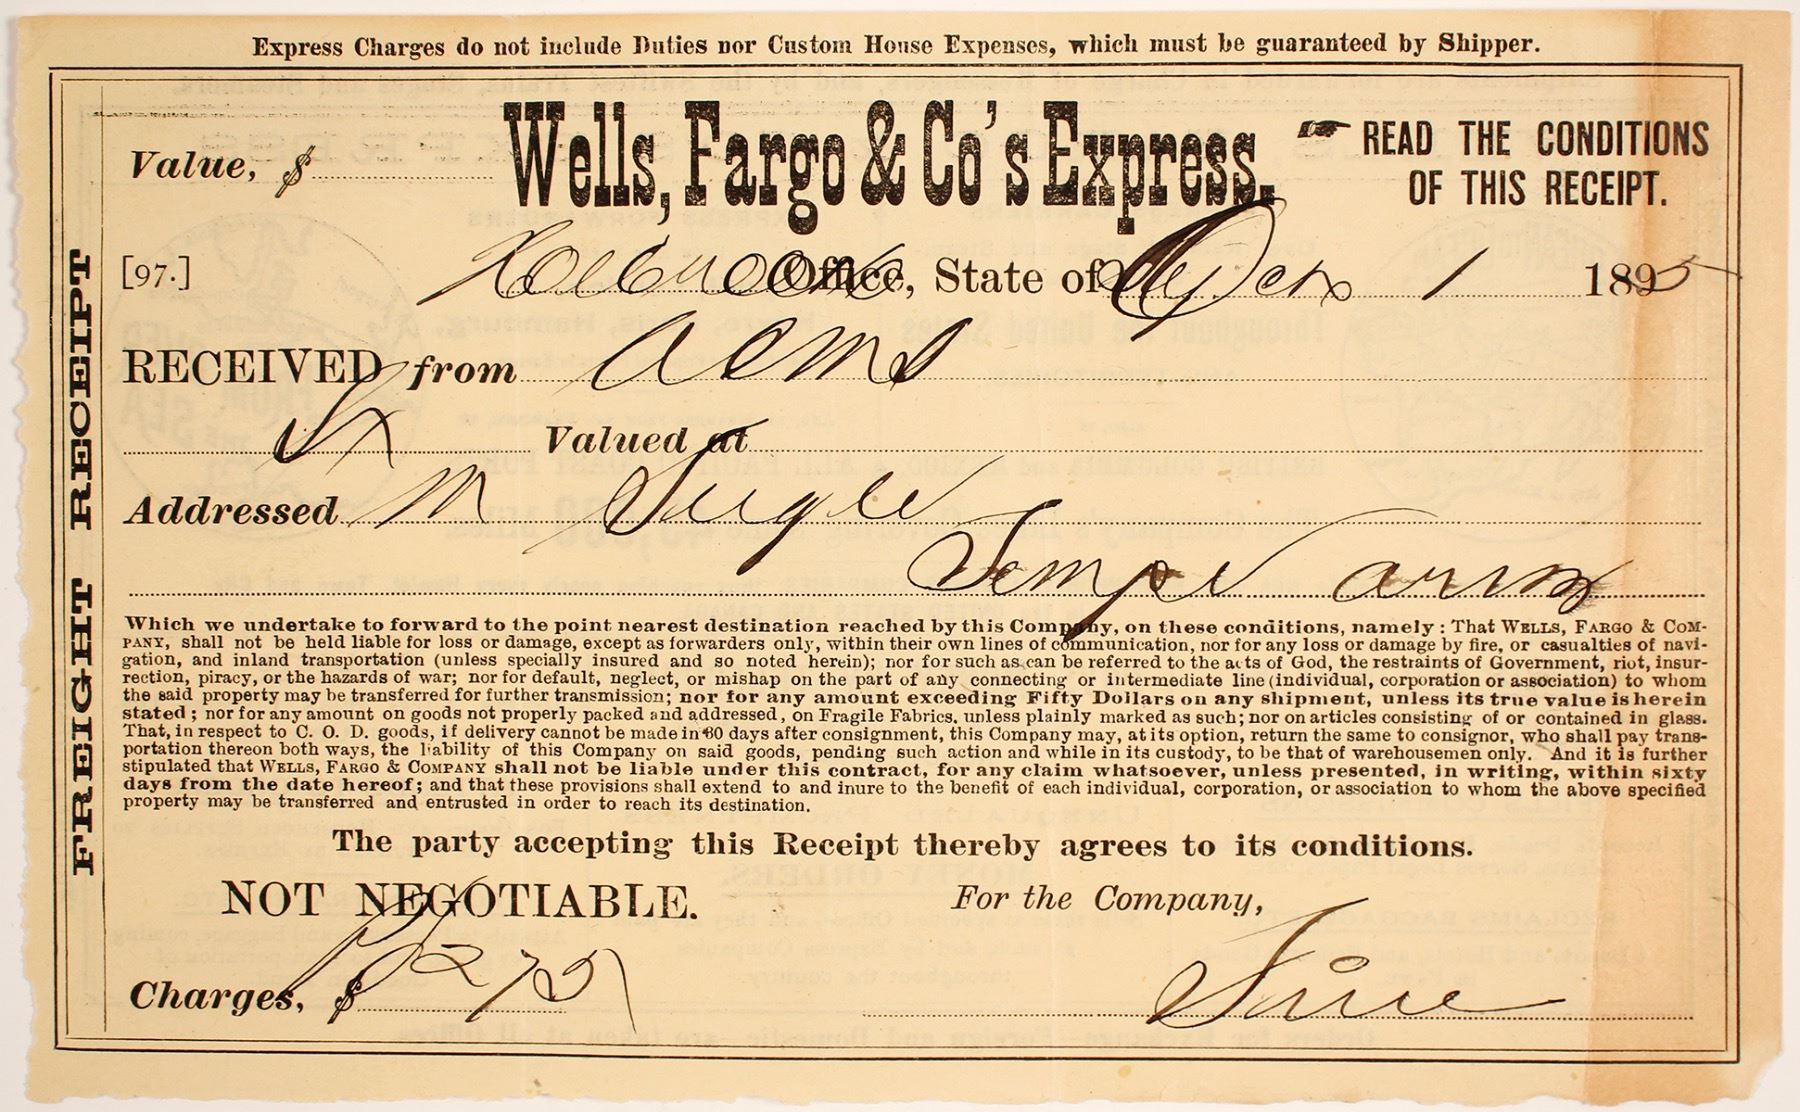 Express Charges do not include Duties nor Custom House Expenses, which must be guaranteed by Shipper.
Value, $ Wells, Fargo & Co's Express. READ THE CONDITIONS
OF THIS RECEIPT.
[97.] Holbrook Office, State of 1 1895
RECEIVED from acms
Valued at
Addressed M
Tempe
Which we undertake to forward to the point nearest destination reached by this Company, on these conditions, namely: That WELLS, FARGO & COM-
PANY, shall not be held liable for loss or damage, except as forwarders only, within their own lines of communication, nor for any loss or damage by fire, or casualties of navi-
gation, and inland transportation (unless specially insured and so noted herein); nor for such as can be referred to the acts of God, the restraints of Government, riot, insur-
rection, piracy, or the hazards of war; nor for default, neglect, or mishap on the part of any connecting or intermediate line (individual, corporation or association) to whom
the said property may be transferred for further transmission; nor for any amount exceeding Fifty Dollars on any shipment, unless its true value is herein
stated; nor for any amount on goods not properly packed and addressed, on Fragile Fabrics, unless plainly marked as such; nor on articles consisting of or contained in glass.
That, in respect to C. O. D. goods, if delivery cannot be made in 30 days after consignment, this Company may, at its option, return the same to consignor, who shall pay trans-
portation thereon both ways, the liability of this Company on said goods, pending such action and while in its custody, to be that of warehousemen only. And it is further
stipulated that WELLS, FARGO & COMPANY shall not be liable under this contract, for any claim whatsoever, unless presented, in writing, within sixty
days from the date hereof; and that these provisions shall extend to and inure to the benefit of each individual, corporation, or association to whom the above specified
property may be transferred and entrusted in order to reach its destination.
The party accepting this Receipt thereby agrees to its conditions.
NOT NEGOTIABLE. For the Company,
Charges, $
FREIGHT RECEIPT